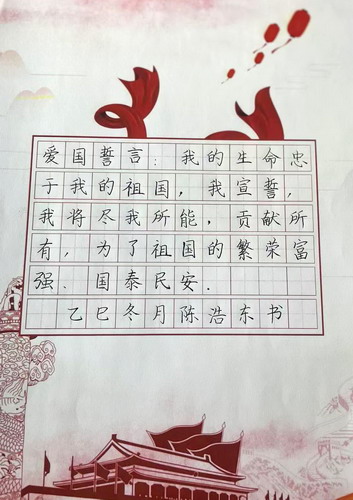 爱国誓言：我的生命忠
于我的祖国，我宣誓，
我将尽我所能，贡献所
有，为了祖国的繁荣富
强．国泰民安．
乙巳冬月陈浩东书